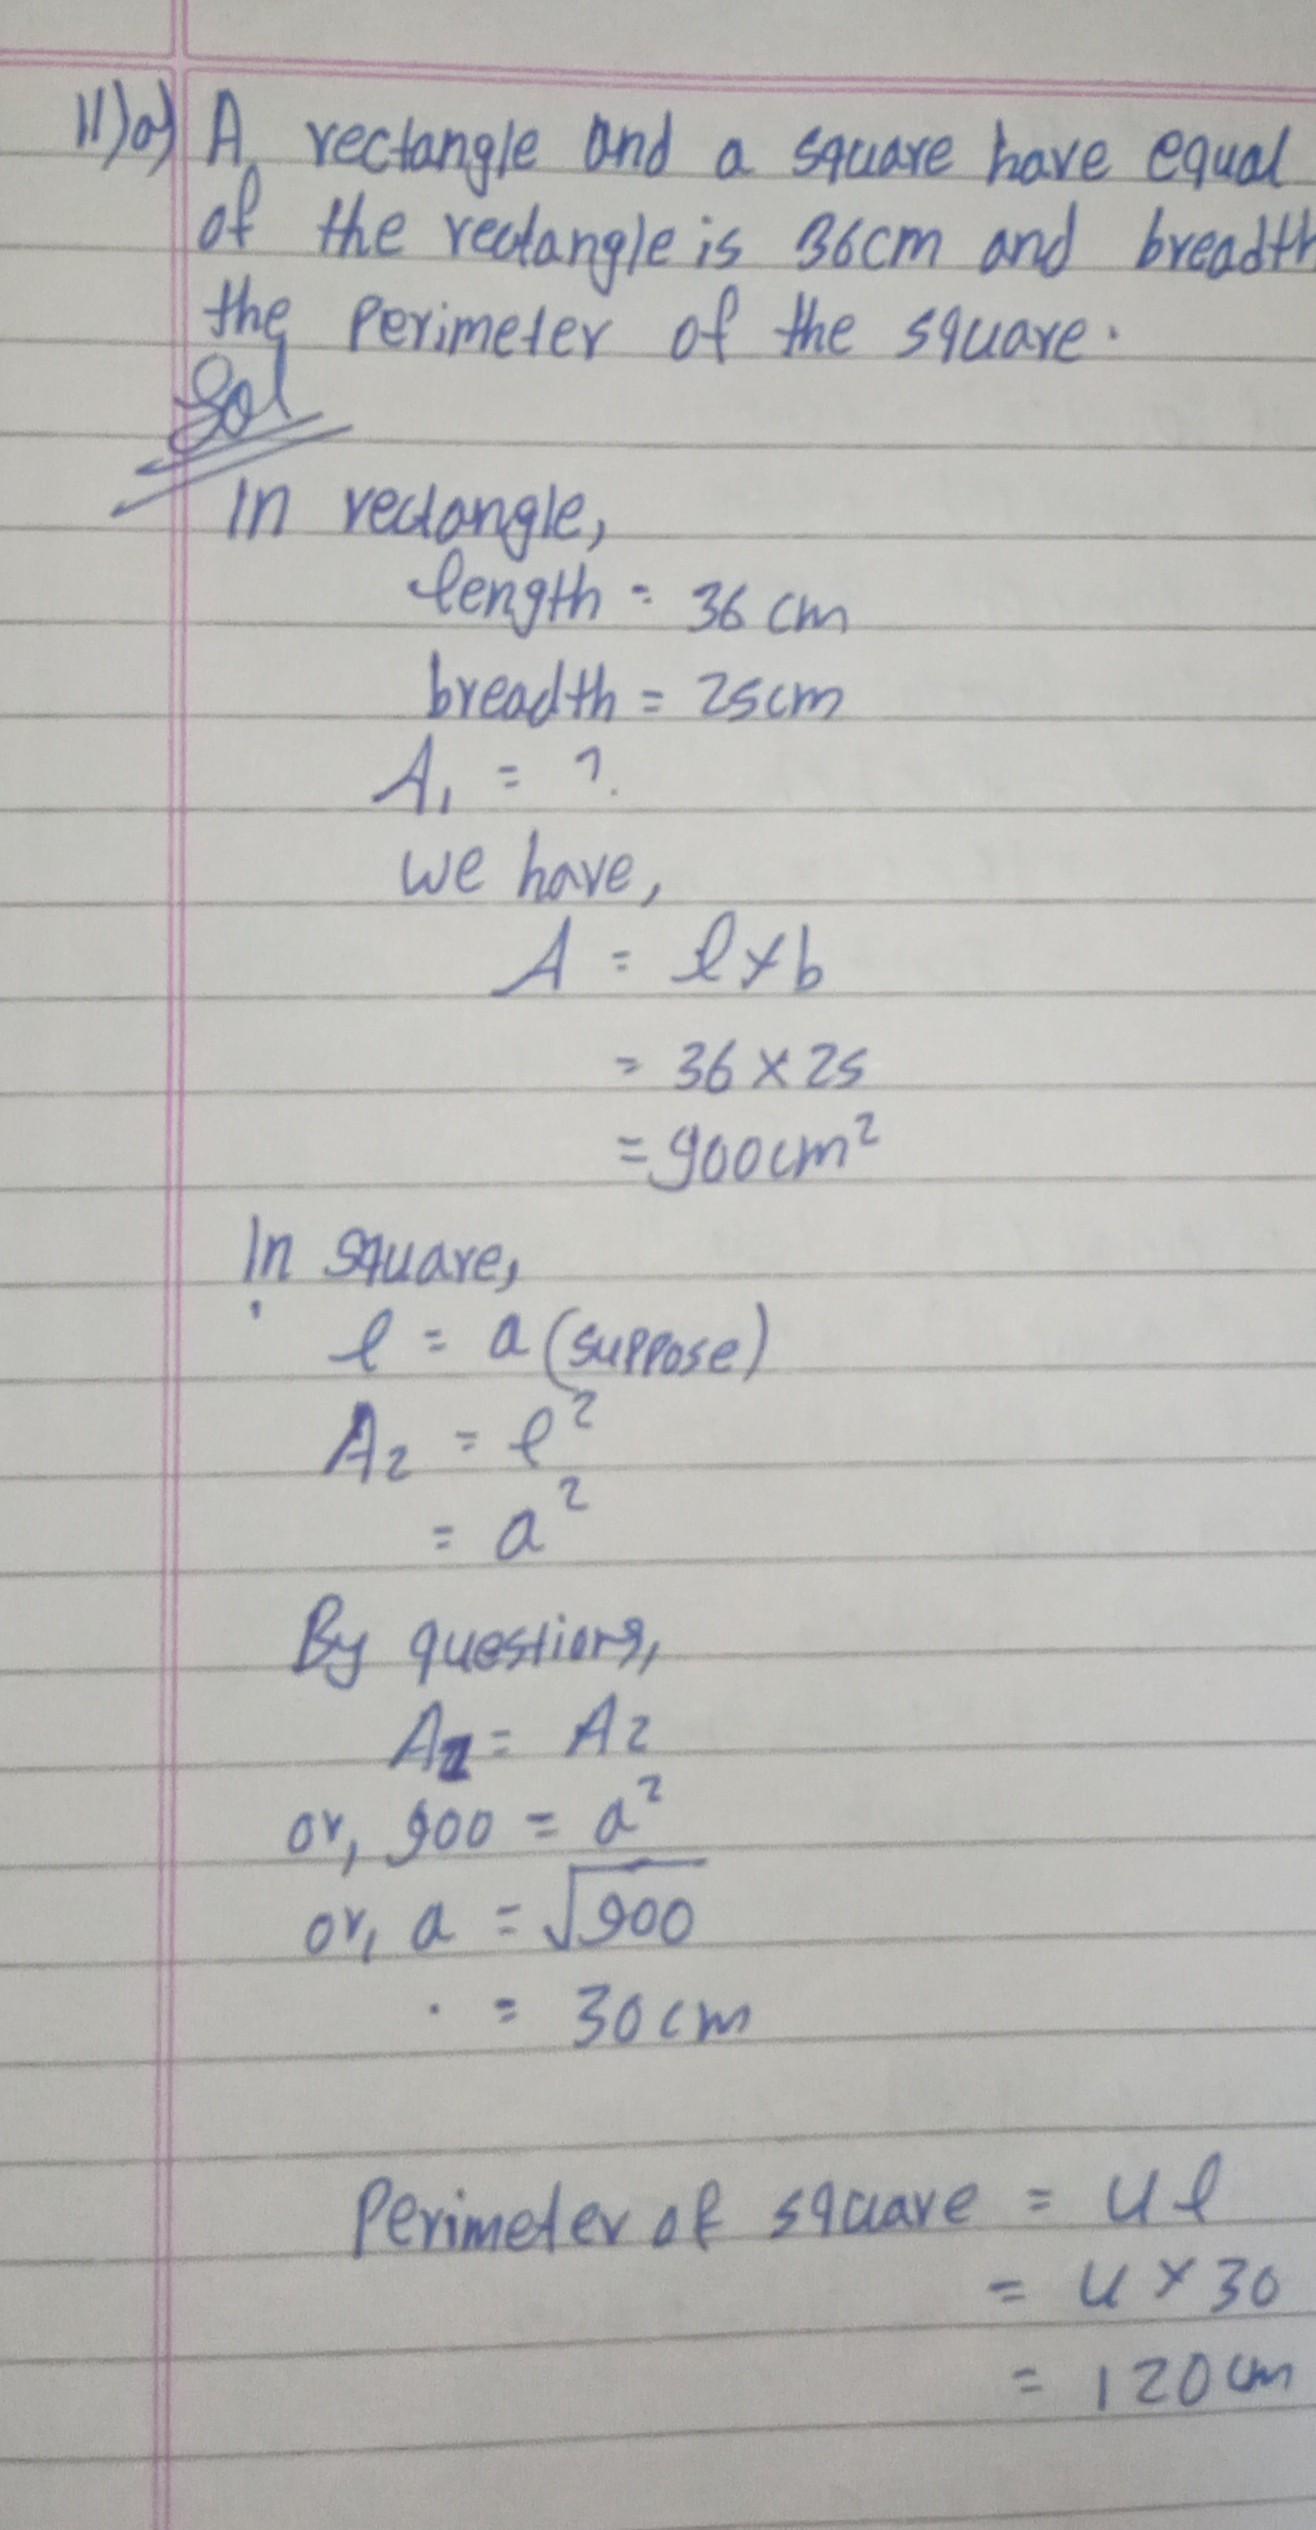 11)a) A rectangle and a square have equal
of the rectangle is 36cm and breadth
the perimeter of the square.
Sol
In rectangle,
length = 36 cm
breadth = 25cm
A₁ = ?
we have,
A = l×b
= 36 × 25
= 900cm²
In square,
l = a (suppose)
A₂ = l²
= a²
By questions,
A₁ = A₂
or, 900 = a²
or, a = √900
= 30cm
Perimeter of square = 4l
= 4 × 30
= 120cm